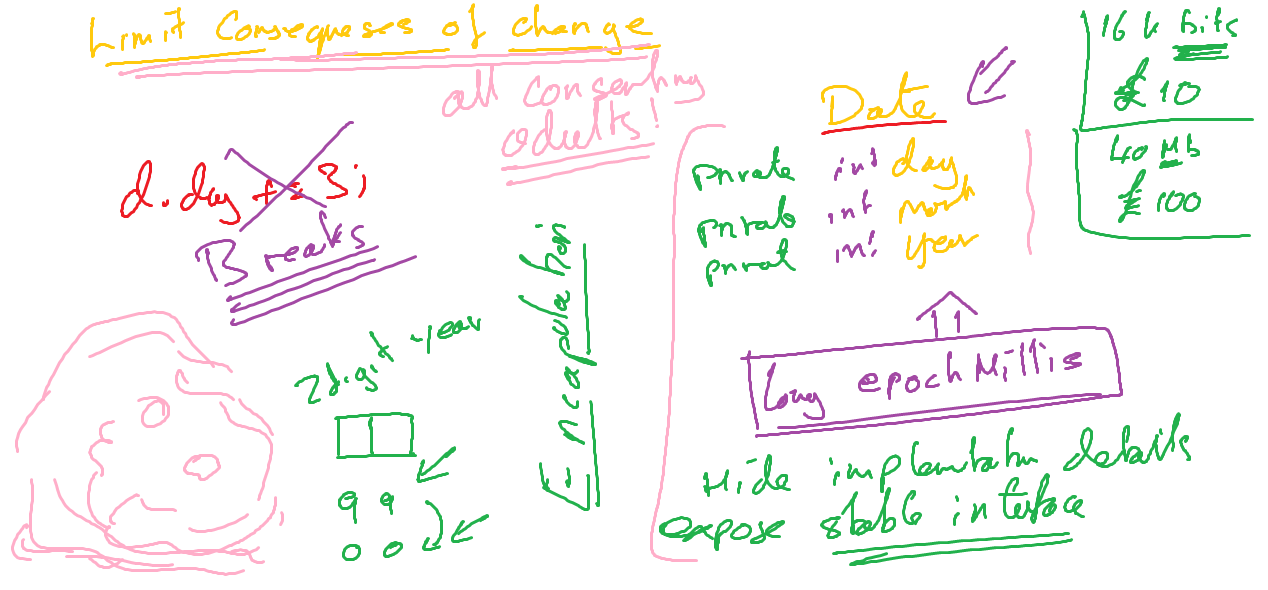 Limit Conseqeses of change
all consenting
adults!
d.day += 3;
Breaks
2 digit year
9 9
0 0
Encapulation
Date
Private int day
private int month
privat int year
long epochMillis
Hide implemtatn details
expose stable interface
16 k bits
£ 10
40 Mb
£ 100